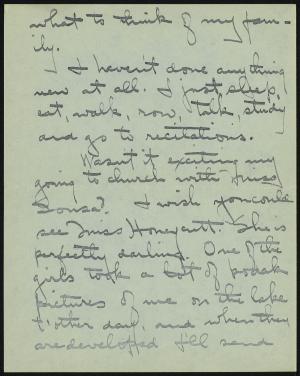 what to think of my fam-
ily.
I haven't done anything
new at all. I just sleep,
eat, walk, row, talk, study
and go to recitations.
Wasn't it exciting my
going to church with Miss
Sousa? I wish you could
see Miss Honeycutt. She is
perfectly darling. One of the
girls took a lot of kodak
pictures of me on the lake
t'other day, and when they
are developed I'll send